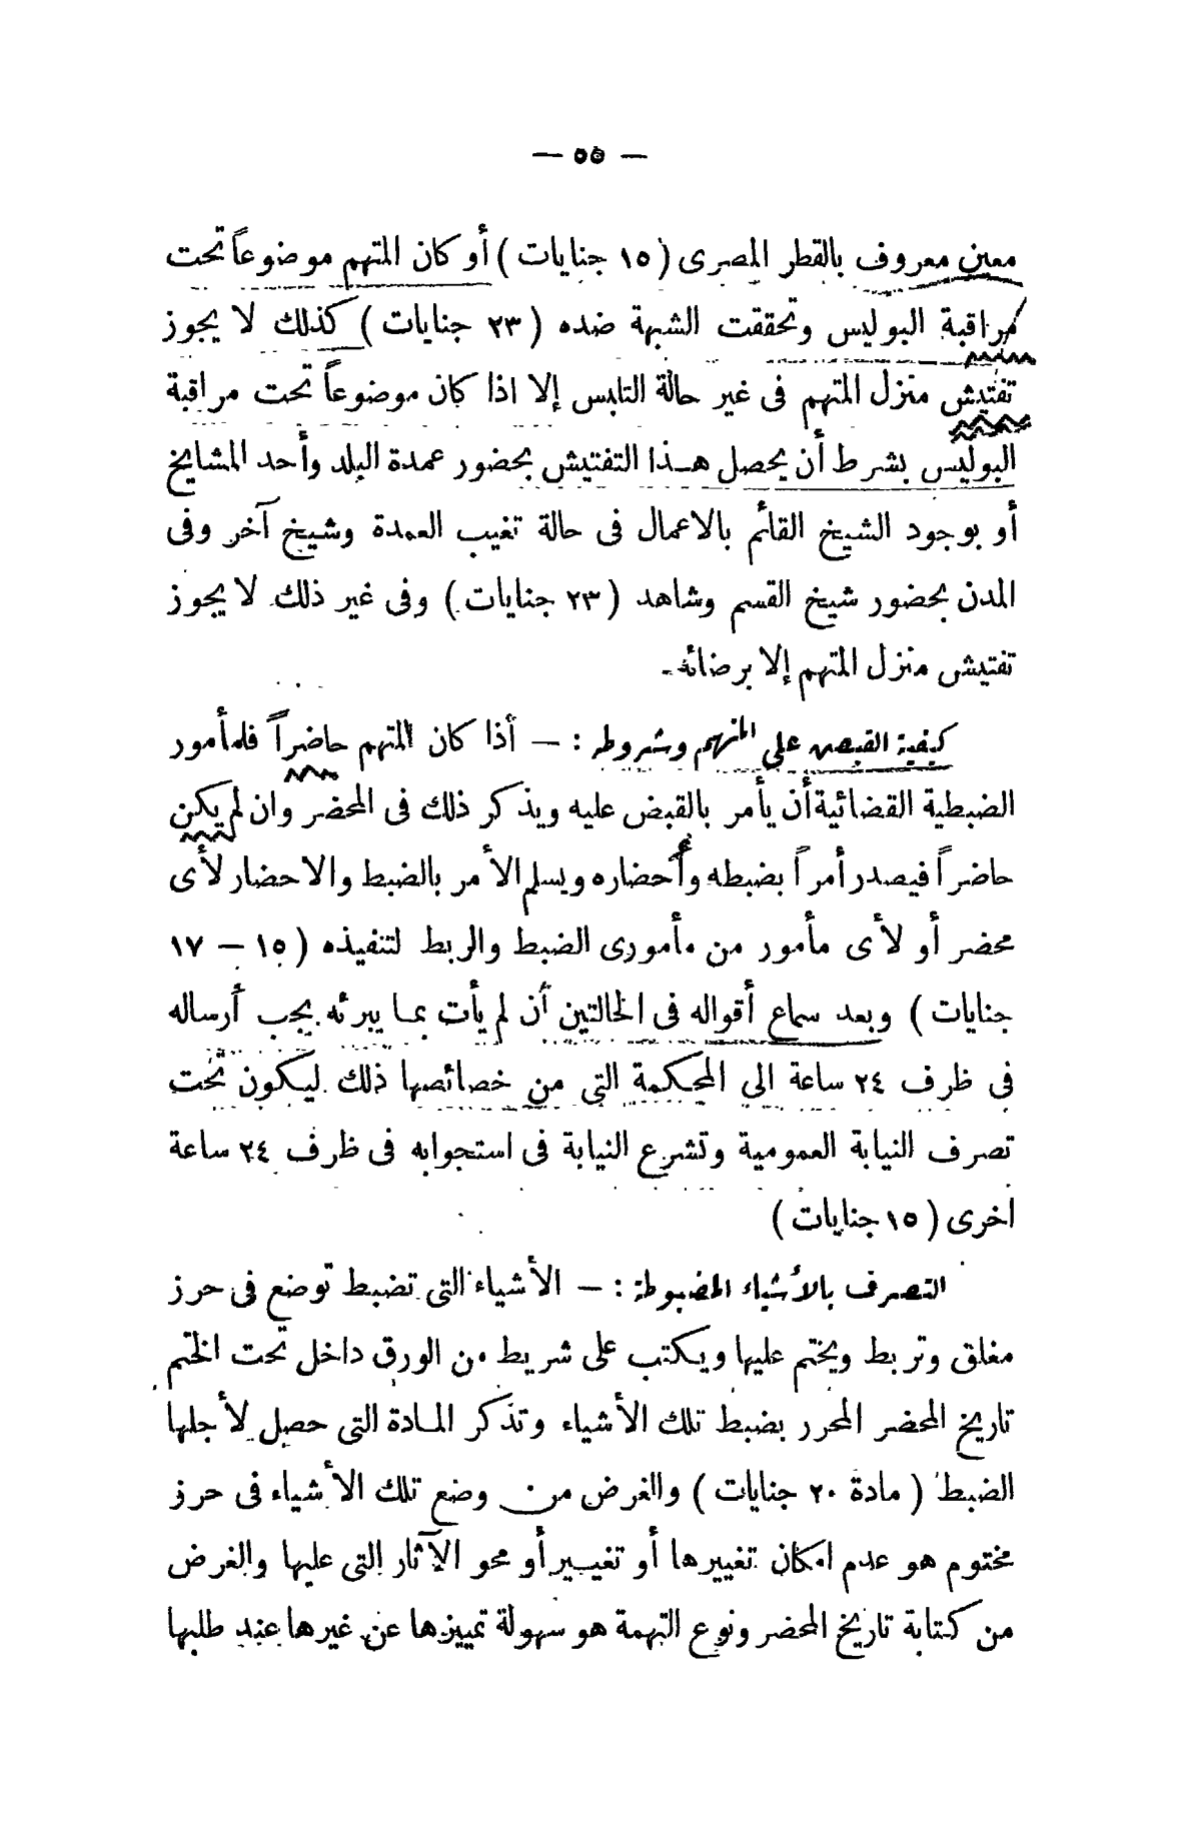 — ٥٥ —
معين معروف بالقطر المصرى (١٥ جنايات) أو كان المتهم موضوعاً تحت
مراقبة البوليس وتحققت الشبهة ضده (٢٣ جنايات) كذلك لا يجوز
تفتيش منزل المتهم فى غير حالة التلبس إلا اذا كان موضوعاً تحت مراقبة
البوليس بشرط أن يحصل هـذا التفتيش بحضور عمدة البلد وأحد المشايخ
أو بوجود الشيخ القائم بالاعمال فى حالة تغيب العمدة وشيخ آخر وفى
المدن بحضور شيخ القسم وشاهد (٢٣ جنايات) وفى غير ذلك لا يجوز
تفتيش منزل المتهم إلا برضائه.
كيفية القبض على المتهم وشروطه : — أذا كان المتهم حاضراً فلمأمور
الضبطية القضائية أن يأمر بالقبض عليه ويذكر ذلك فى المحضر وان لم يكن
حاضراً فيصدر أمراً بضبطه وأحضاره ويسلم الأمر بالضبط والاحضار لأى
محضر أو لأى مأمور من مأمورى الضبط والربط لتنفيذه (١٥ — ١٧
جنايات) وبعد سماع أقواله فى الحالتين أن لم يأت بمـا يبرئه يجب أرساله
فى ظرف ٢٤ ساعة الى المحكمة التى من خصائصها ذلك ليكون تحت
تصرف النيابة العمومية وتشرع النيابة فى استجوابه فى ظرف ٢٤ ساعة
اخرى (١٥ جنايات)
التصرف بالأشياء المضبوطة : — الأشياء التى تضبط توضع فى حرز
مغلق وتربط ويختم عليها ويكتب على شريط من الورق داخل تحت الختم
تاريخ المحضر المحرر بضبط تلك الأشياء وتذكر المـادة التى حصل لأجلها
الضبط (مادة ٢٠ جنايات) والغرض من وضع تلك الأشياء فى حرز
مختوم هو عدم امكان تغييرها أو تغيـير أو محو الآثار التى عليها والغرض
من كتابة تاريخ المحضر ونوع التهمة هو سهولة تمييزها عن غيرها عند طلبها